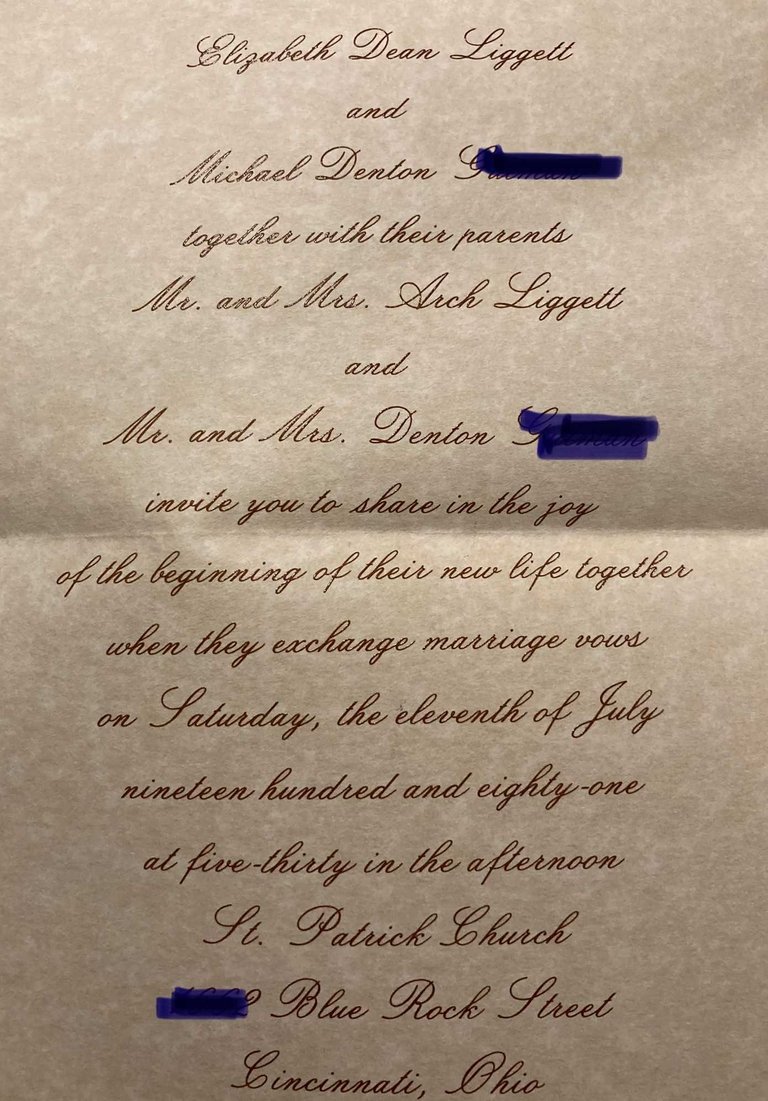 Elizabeth Dean Liggett
and
Michael Denton
together with their parents
Mr. and Mrs. Arch Liggett
and
Mr. and Mrs. Denton
invite you to share in the joy
of the beginning of their new life together
when they exchange marriage vows
on Saturday, the eleventh of July
nineteen hundred and eighty-one
at five-thirty in the afternoon
St. Patrick Church
Blue Rock Street
Cincinnati, Ohio